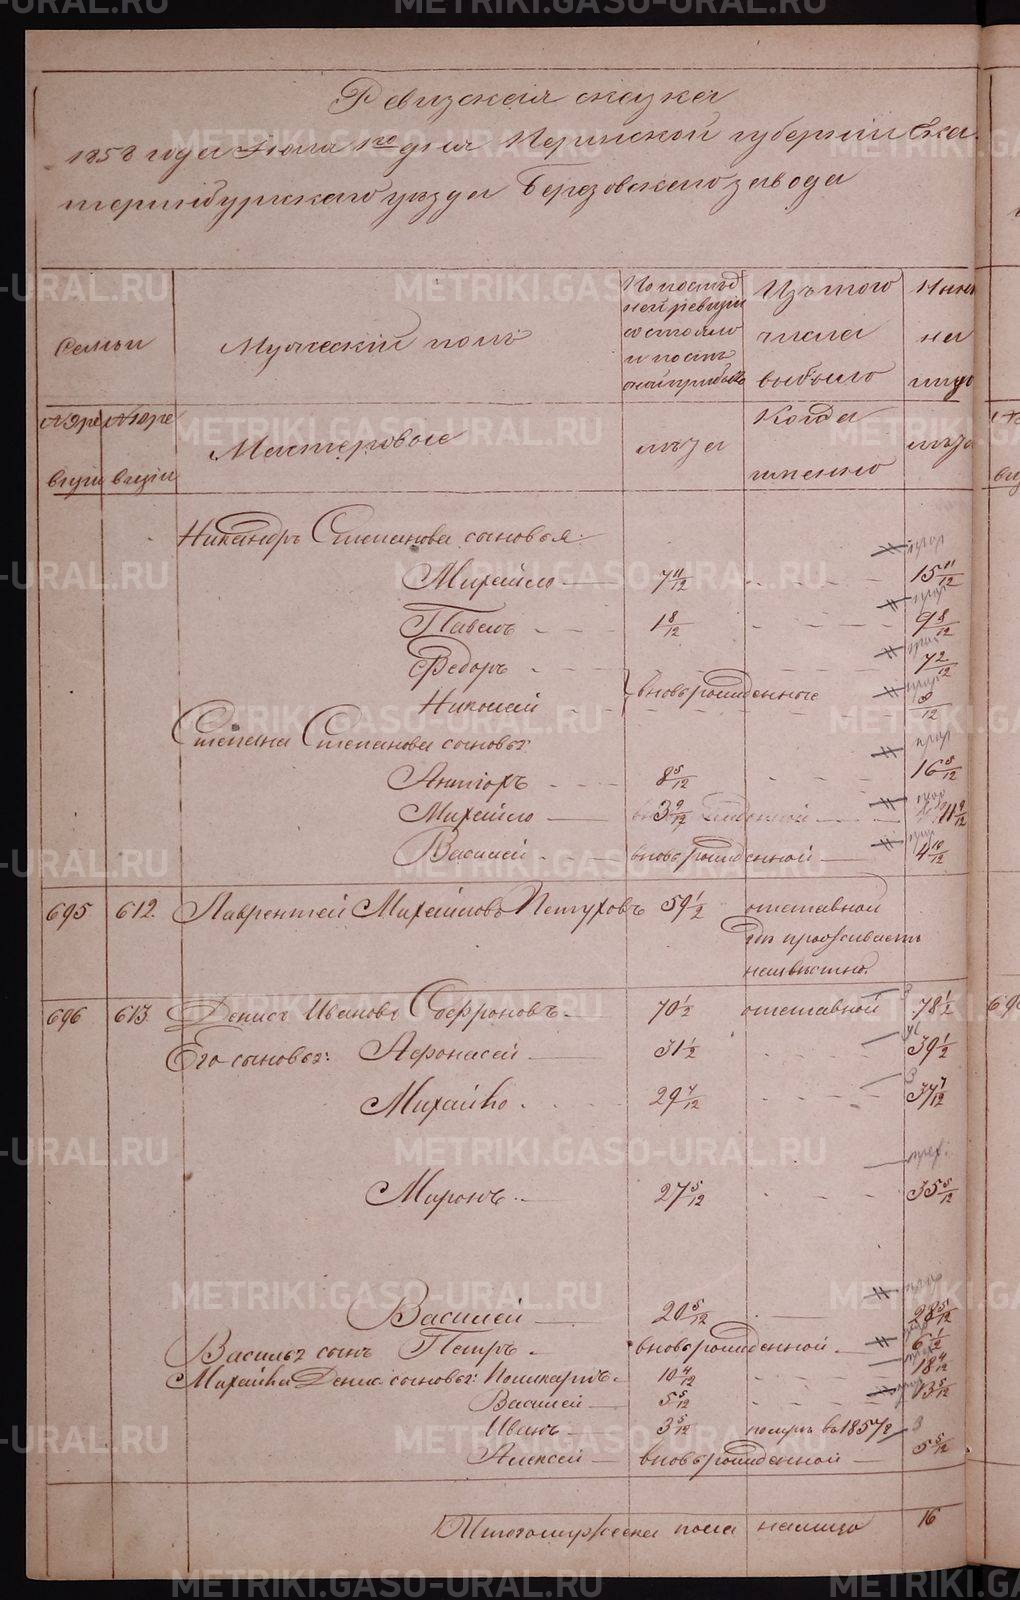 Ревизская сказка
1858 года Июля 1го дня Пермской губернии Ека-
теринбургскаго уезда Березовскаго завода
Семьи
Мужеский полъ
По послѣд
ней ревизии
состояло
и послѣ
оной прибыло
Изъ того
числа
выбыло
Ныне
на
лицо
Мастеровые
лѣта
Когда
именно
лѣта
Никандръ Степанова сыновья:
Михайло 7 11/12 15 11/12
Павелъ 1 8/12 9 8/12
Федоръ 7 2/12
вновь рожденные
Николай 8/12
Степана Степанова сыновья:
8 5/12 16 5/12
Михайло 3 9/12 11 9/12
Василей вновь рожденной 4 10/12
695 612. Лаврентей Михайловъ Петуховъ 59 1/2 отставной
где проживаетъ
неизвѣстно.
696 613. Денисъ Ивановъ Сафроновъ 70 1/2 отставной 78 1/2
Его сыновья: Афонасей 31 1/2 39 1/2
Михайло 29 7/12 37 7/12
Миронъ 27 5/12 35 5/12
Василей 20 5/12 28 5/12
Василья сынъ Петръ вновь рожденной 6 1/2
Михайла Денис. сыновья: Поликарпъ 10 4/12 18 4/12
Василей 5 5/12 13 5/12
Иванъ 3 5/12 помѣръ въ 1857
Алексей вновь рожденной 5 5/12
Итого мужеска пола налицо 16
METRIKI.GASO-URAL.RU